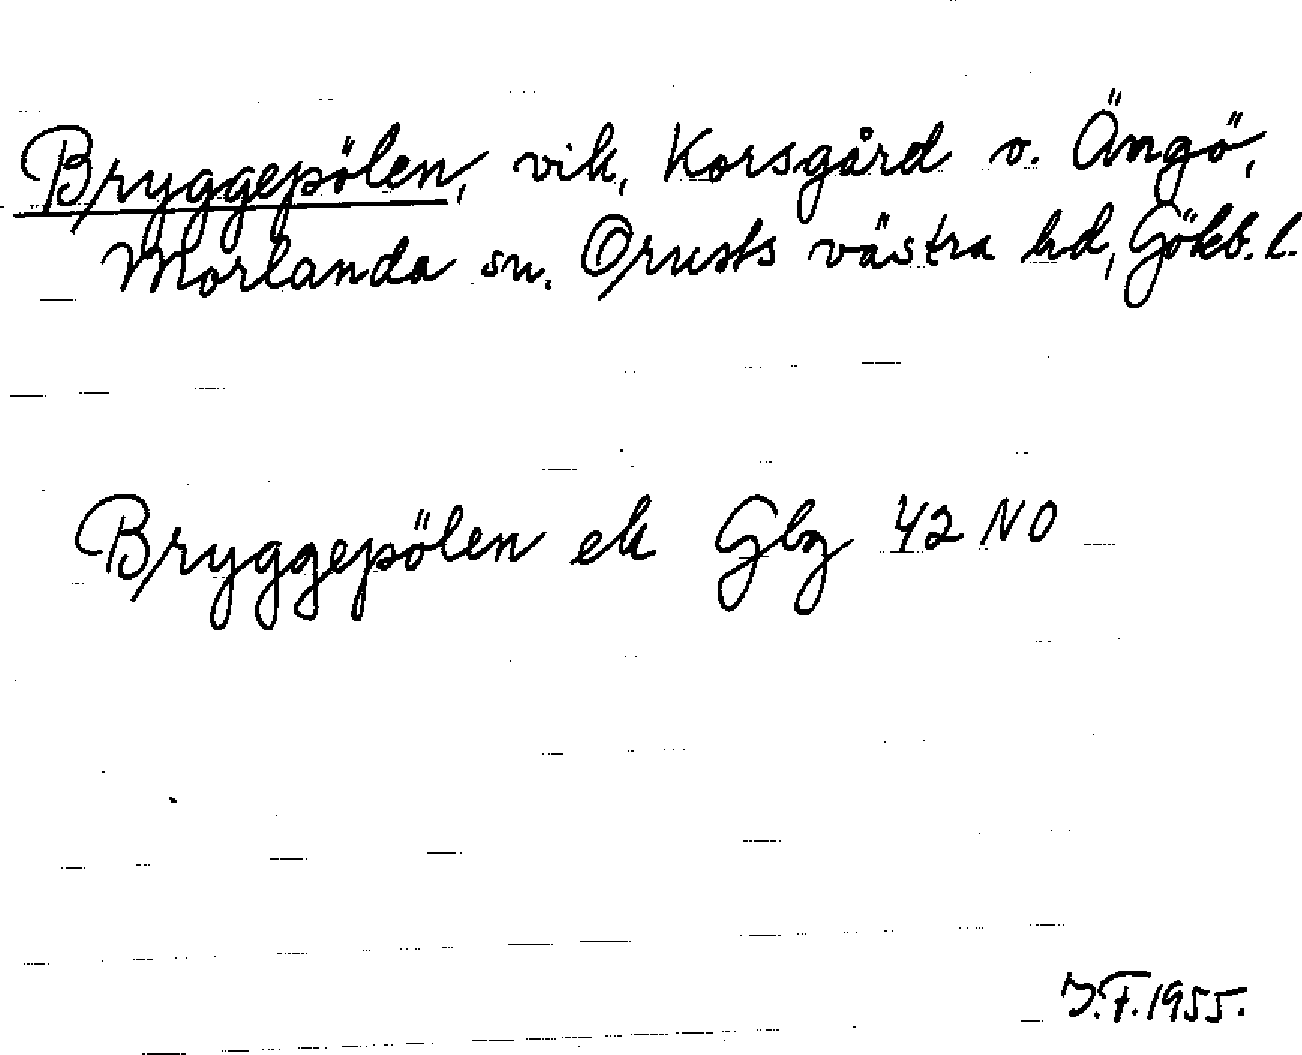 Bryggepölen, vik, Korsgård o. Ängö,
Morlanda sn. Orusts västra hd, Gökb. l.
Bryggepölen ek Gbg 42 NO
J.F. 1955.